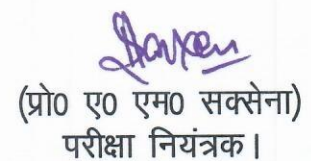 (प्रो0 ए0 एम0 सक्सेना)
परीक्षा नियंत्रक।